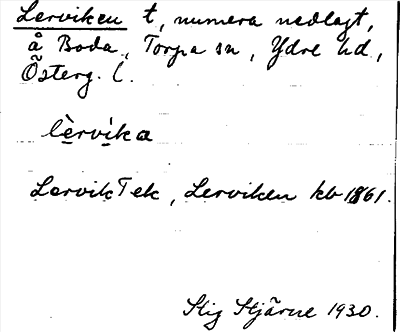 Lerviken t, numera nedlagt,
å Boda, Torpa sn, Ydre hd,
Österg. l.
lèrvika
Lervik Tek, Lerviken kb 1861.
Stig Stjärne 1930.